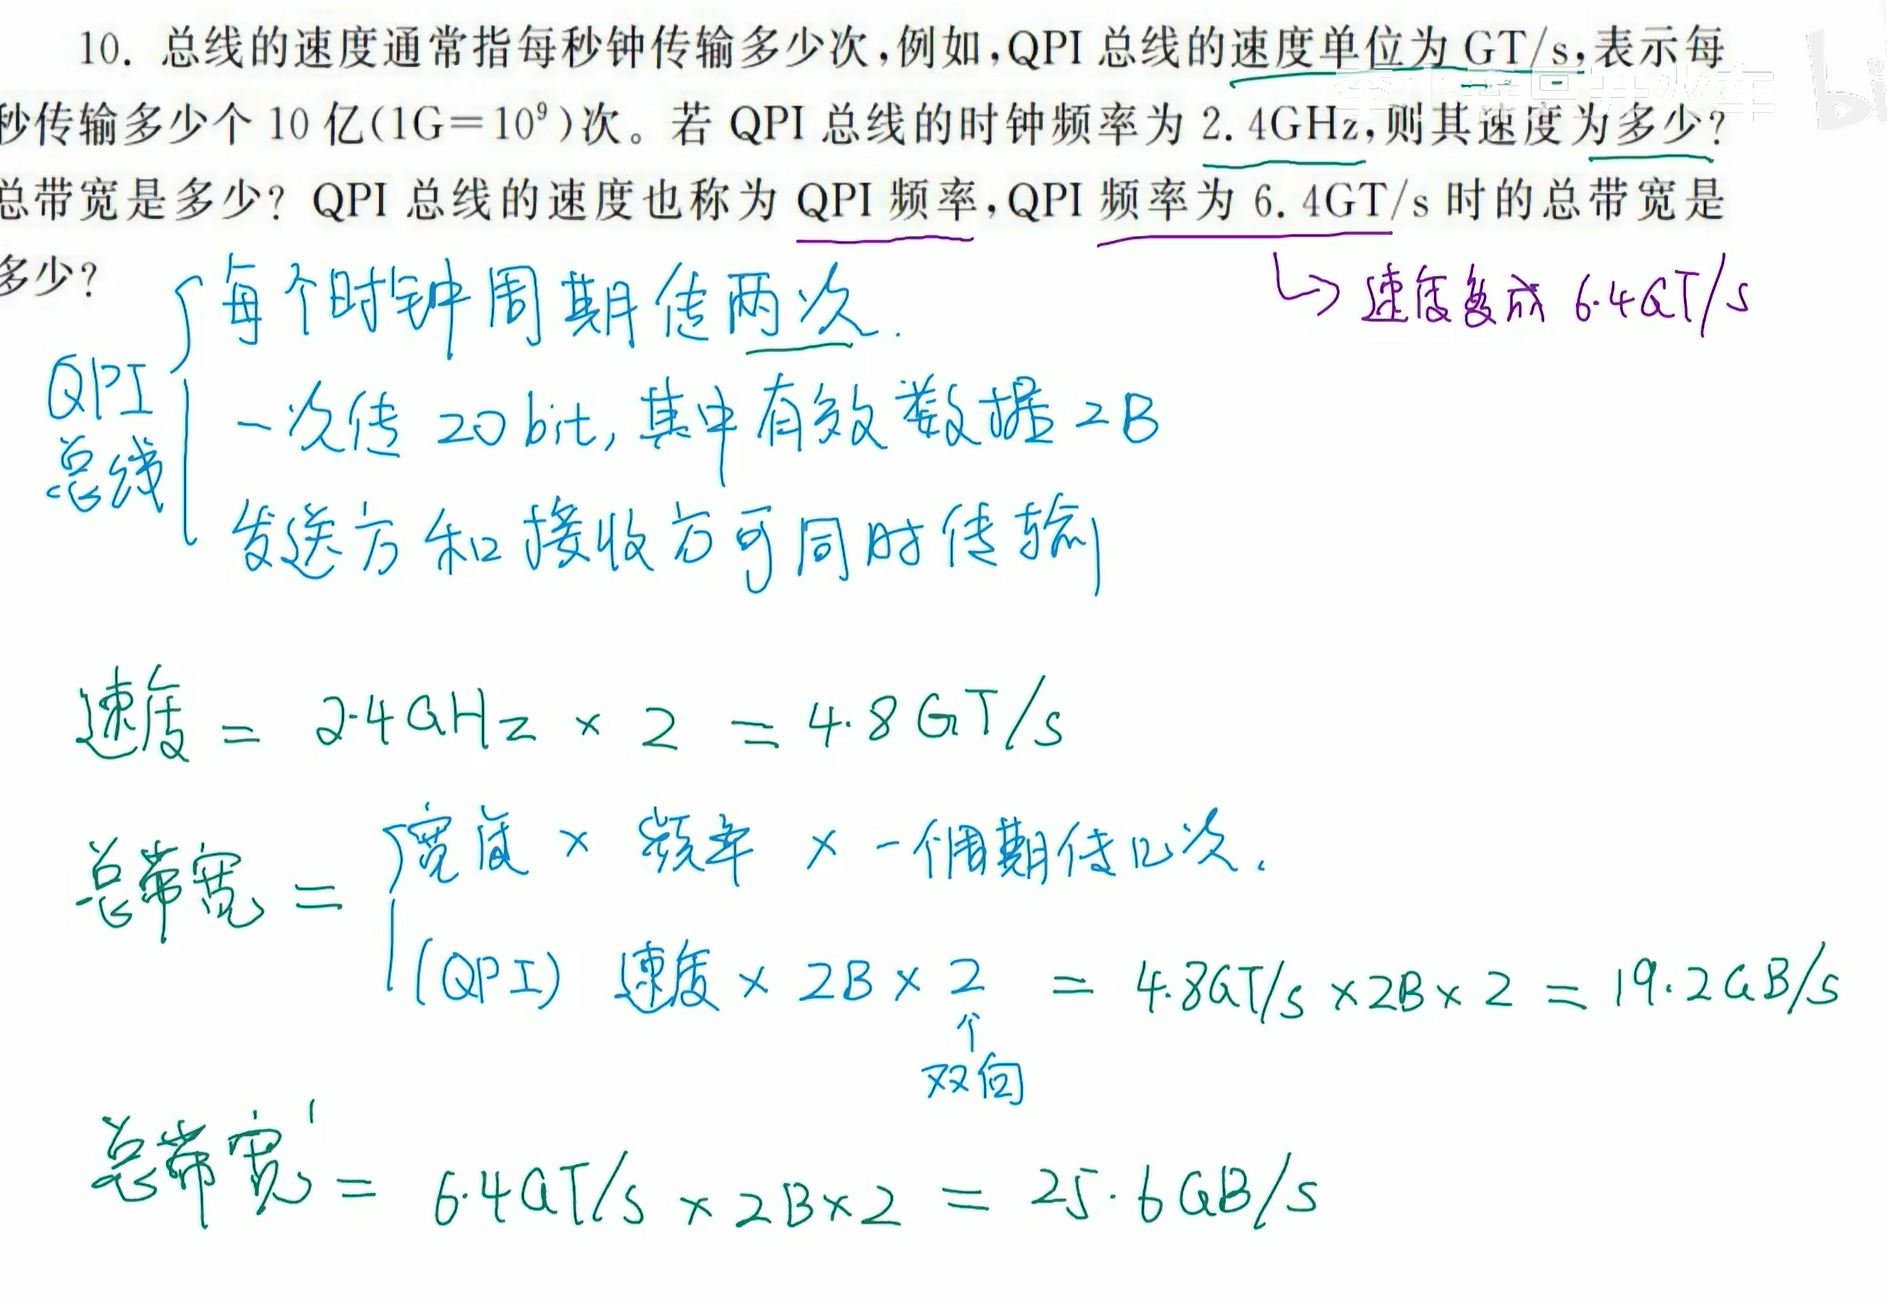 10. 总线的速度通常指每秒钟传输多少次,例如,QPI 总线的速度单位为 GT/s,表示每
秒传输多少个 10 亿(1G=10⁹)次。若 QPI 总线的时钟频率为 2.4GHz,则其速度为多少?
总带宽是多少? QPI 总线的速度也称为 QPI 频率,QPI 频率为 6.4GT/s 时的总带宽是
多少?
↳ 速度变成 6.4GT/s
QPI 总线
每个时钟周期传两次.
一次传 20bit, 其中有效数据 2B
发送方和接收方可同时传输
速度 = 2.4GHz × 2 = 4.8GT/s
总带宽 =
宽度 × 频率 × 一个周期传几次.
(QPI) 速度 × 2B × 2 = 4.8GT/s × 2B × 2 = 19.2GB/s
↑
双向
总带宽' = 6.4GT/s × 2B × 2 = 25.6GB/s